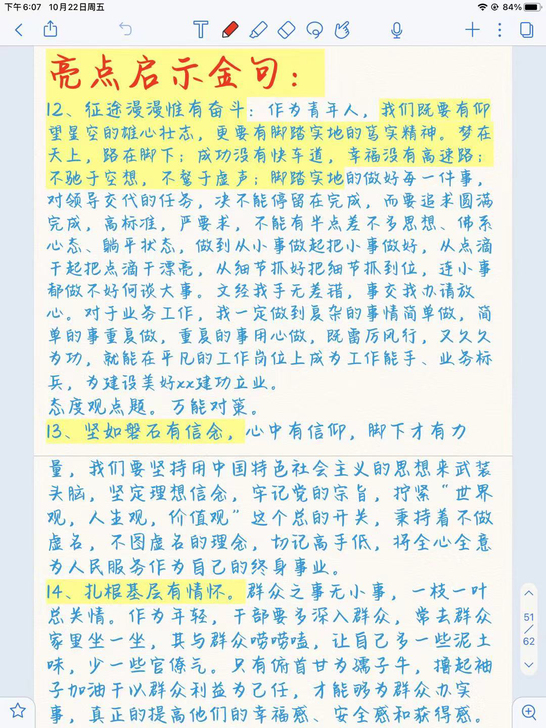 下午6:07 10月22日周五 84%
亮点启示金句：
12、征途漫漫惟有奋斗：作为青年人，我们既要有仰
望星空的雄心壮志，更要有脚踏实地的笃实精神。梦在
天上，路在脚下；成功没有快车道，幸福没有高速路；
不驰于空想，不骛于虚声；脚踏实地的做好每一件事，
对领导交代的任务，决不能停留在完成，而要追求圆满
完成，高标准，严要求，不能有半点差不多思想、佛系
心态、躺平状态，做到从小事做起把小事做好，从点滴
干起把点滴干漂亮，从细节抓好把细节抓到位，连小事
都做不好何谈大事。文经我手无差错，事交我办请放
心。对于业务工作，我一定做到复杂的事情简单做，简
单的事重复做，重复的事用心做，既雷厉风行，又久久
为功，就能在平凡的工作岗位上成为工作能手、业务标
兵，为建设美好xx建功立业。
态度观点题。万能对策。
13、坚如磐石有信念，心中有信仰，脚下才有力
量，我们要坚持用中国特色社会主义的思想来武装
头脑，坚定理想信念，牢记党的宗旨，拧紧“世界
观，人生观，价值观”这个总的开关，秉持着不做
虚名，不图虚名的理念，切记高手低，将全心全意
为人民服务作为自己的终身事业。
14、扎根基层有情怀。群众之事无小事，一枝一叶
总关情。作为年轻，干部要多深入群众，常去群众
家里坐一坐，其与群众唠唠嗑，让自己多一些泥土
味，少一些官僚气。只有俯首甘为孺子牛，撸起袖
子加油干以群众利益为己任，才能够为群众办实
事，真正的提高他们的幸福感、安全感和获得感
51
62